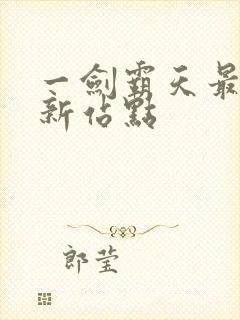 一劍霸天最
新佔點
郎莹